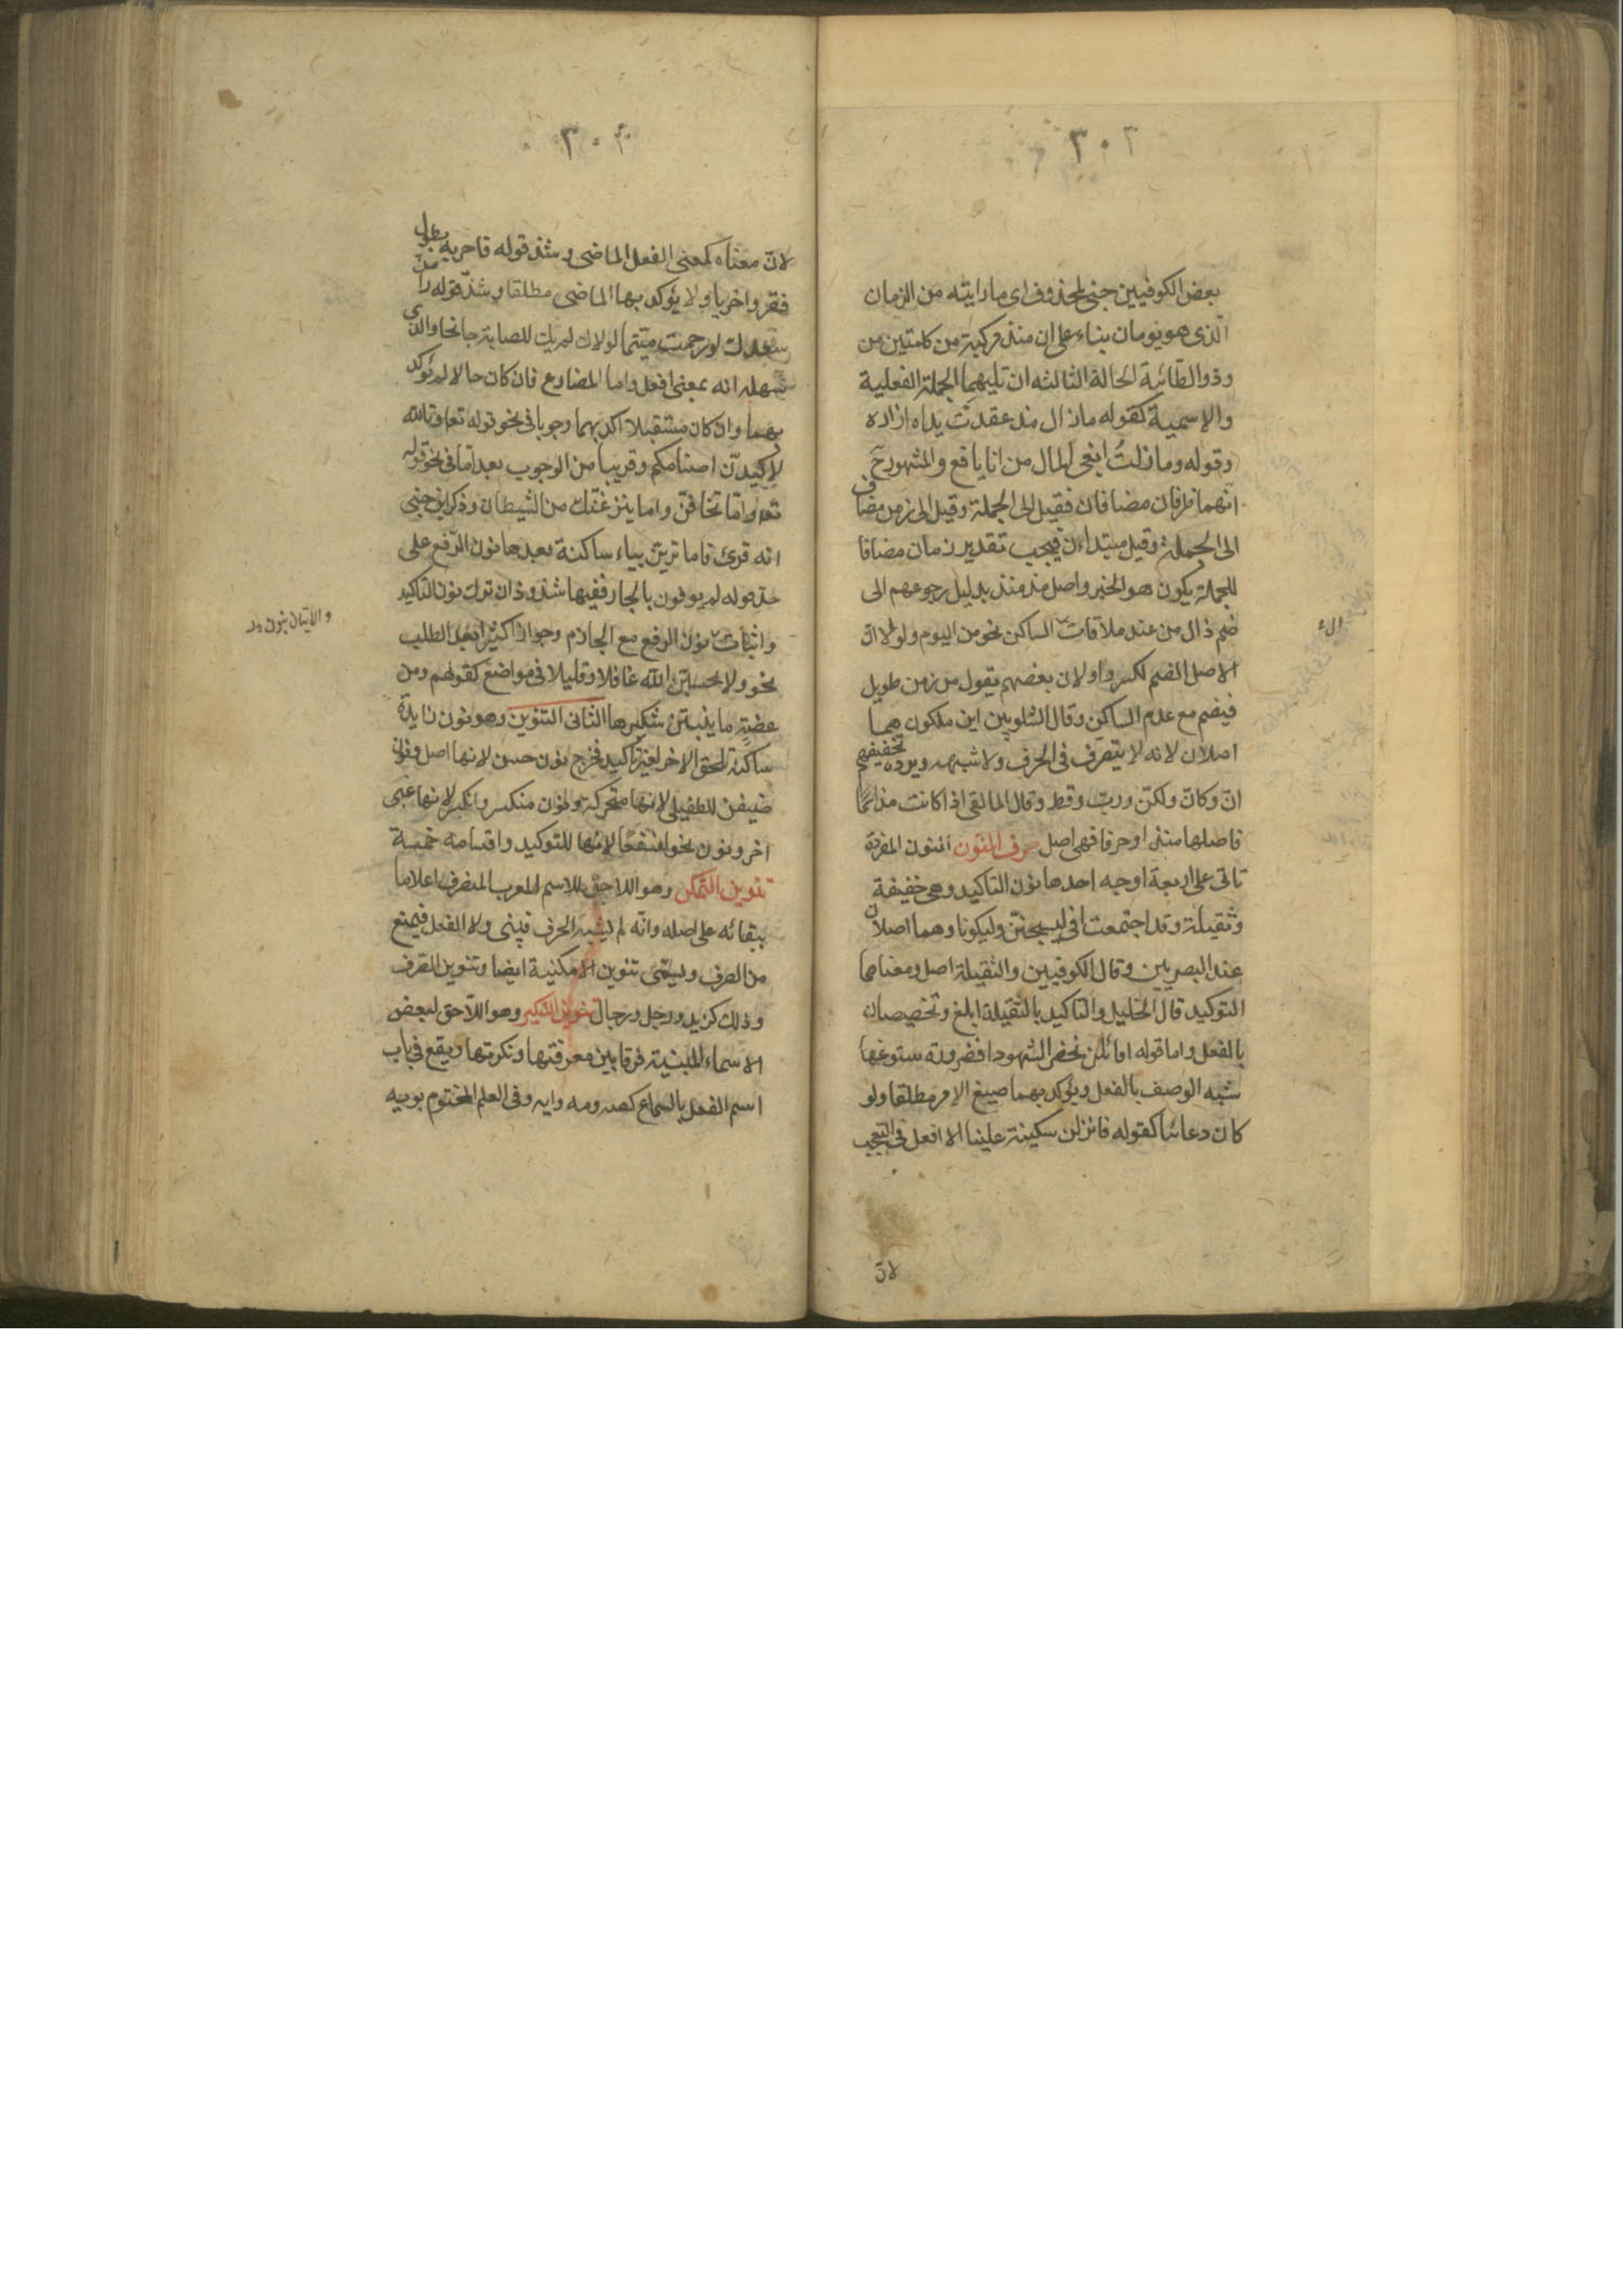 ٣٠٣
بعض الكوفيين جنى لمحذوف اى ما رايته من الزمان
الذى هو يومان بناء على ان منذ مركبة من كلمتين من
وذو الطائية الحالة الثالثه ان تليهما الجملة الفعلية
والاسمية كقوله ما زال مذ عقدت يداه ازاره
وقوله وما زلتُ ابغى المال من انا يافع والمشهور ح
انهما ظرفان مضافان فقيل الى الجملة وقيل الى زمن مضاف
الى الجملة وقيل مبتداءان فيجب تقدير زمان مضافا
للجملة يكون هو الخبر واصل مذ منذ بدليل رجوعهم الى
ضم ذال من عند ملاقات الساكن نحو من اليوم ولولا ان
الاصل الضم لكسروا ولان بعضهم يقول من زمن طويل
فيضم مع عدم الساكن وقال الشلوبين ابن ملكون هما
اصلان لانه لا يتصرف فى الحرف ولا شبهه ويرده تخفيفهم
انّ وكانّ ولكنّ وربّ وقط وقال المالقى اذا كانت مذ اسمًا
فاصلها منذ او حرفا فهى اصل حرف النون النون المفردة
تاتى على اربعة اوجه احدها نون التاكيد وهى خفيفة
وثقيلة وقد اجتمعت فى ليسجننّ وليكونا وهما اصلان
عند البصريين وقال الكوفيين والثقيلة اصل ومعناهما
التوكيد قال الخليل والتاكيد بالثقيلة ابلغ وتخصصان
بالفعل واما قوله اقائلن نحضر الشهودا فضرورة سوغها
شبه الوصف بالفعل ويؤكد بهما صيغ الامر مطلقا ولو
كان دعائيا كقوله فانزلن سكينة علينا الا افعل فى التعجب
لانّ
٣٠٤
لانّ معناه كمعنى الفعل الماضى وشذ قوله فاحر به بطول
فقر واحريا ولا يؤكد بهما الماضى مطلقا وشذّ قوله دامنّ
سعدك لو رحمت متيّما لولاك لم يك للصبابة جانحا والذى
سهله انه بمعنى افعل واما المضارع فان كان حالا لم يؤكد
بهما وان كان مستقبلا اكد بهما وجوبا فى نحو قوله تعا وتالله
لاكيدنّ اصنامكم وقريبا من الوجوب بعد امّا فى نحو قوله
تعه وامّا تخافنّ واما ينزغنّك من الشيطان وذكر ابن جنى
انه قرئ فاما ترينّ بياء ساكنة بعدها نون الرفع على
حد قوله لم يوفون بالجار ففيها شذوذان ترك نون التاكيد
واثبات نون الرفع مع الجازم وجوازا كثيرا بعد الطلب
نحو ولا تحسبنّ الله غافلا وقليلا فى مواضع كقولهم ومن
عضةٍ ما ينبتنّ شكيرها الثانى التنوين وهو نون زايدة
ساكنة تلحق الاخر لغير تأكيد فخرج نون حسن لانها اصل ونون
ضيفن للطفيلى لانها متحركة ونون منكسر وانكسر لانها غير
اخر ونون نحو لنسفعًا لانها للتوكيد واقسامه خمسة
تنوين التمكن وهو اللاحق للاسم المعرب المنصرف اعلاما
ببقائه على اصله وانّه لم يشبه الحرف فيبنى ولا الفعل فيمنع
من الصرف ويسمّى تنوين الامكنية ايضا وتنوين الصرف
وذلك كزيد ورجل ورجال تنوين التنكير وهو اللاّحق لبعض
الاسماء المبنية فرقا بين معرفتها ونكرتها ويقع فى باب
اسم الفعل بالسماع كصه ومه وايه وفى العلم المختوم بويه
والاتيان بنون